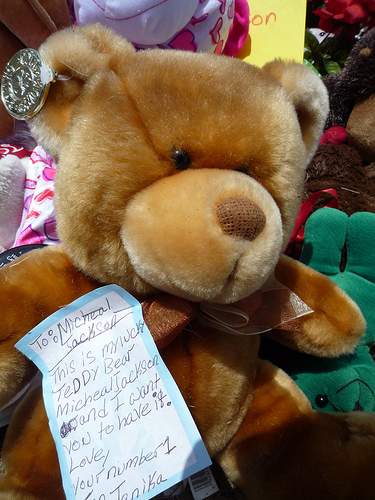 on
To: Micheal
Jackson
This is my lucky
TeDDy Bear
Micheal Jackson
and I want
you to have it.
Love,
your number 1
Tanika